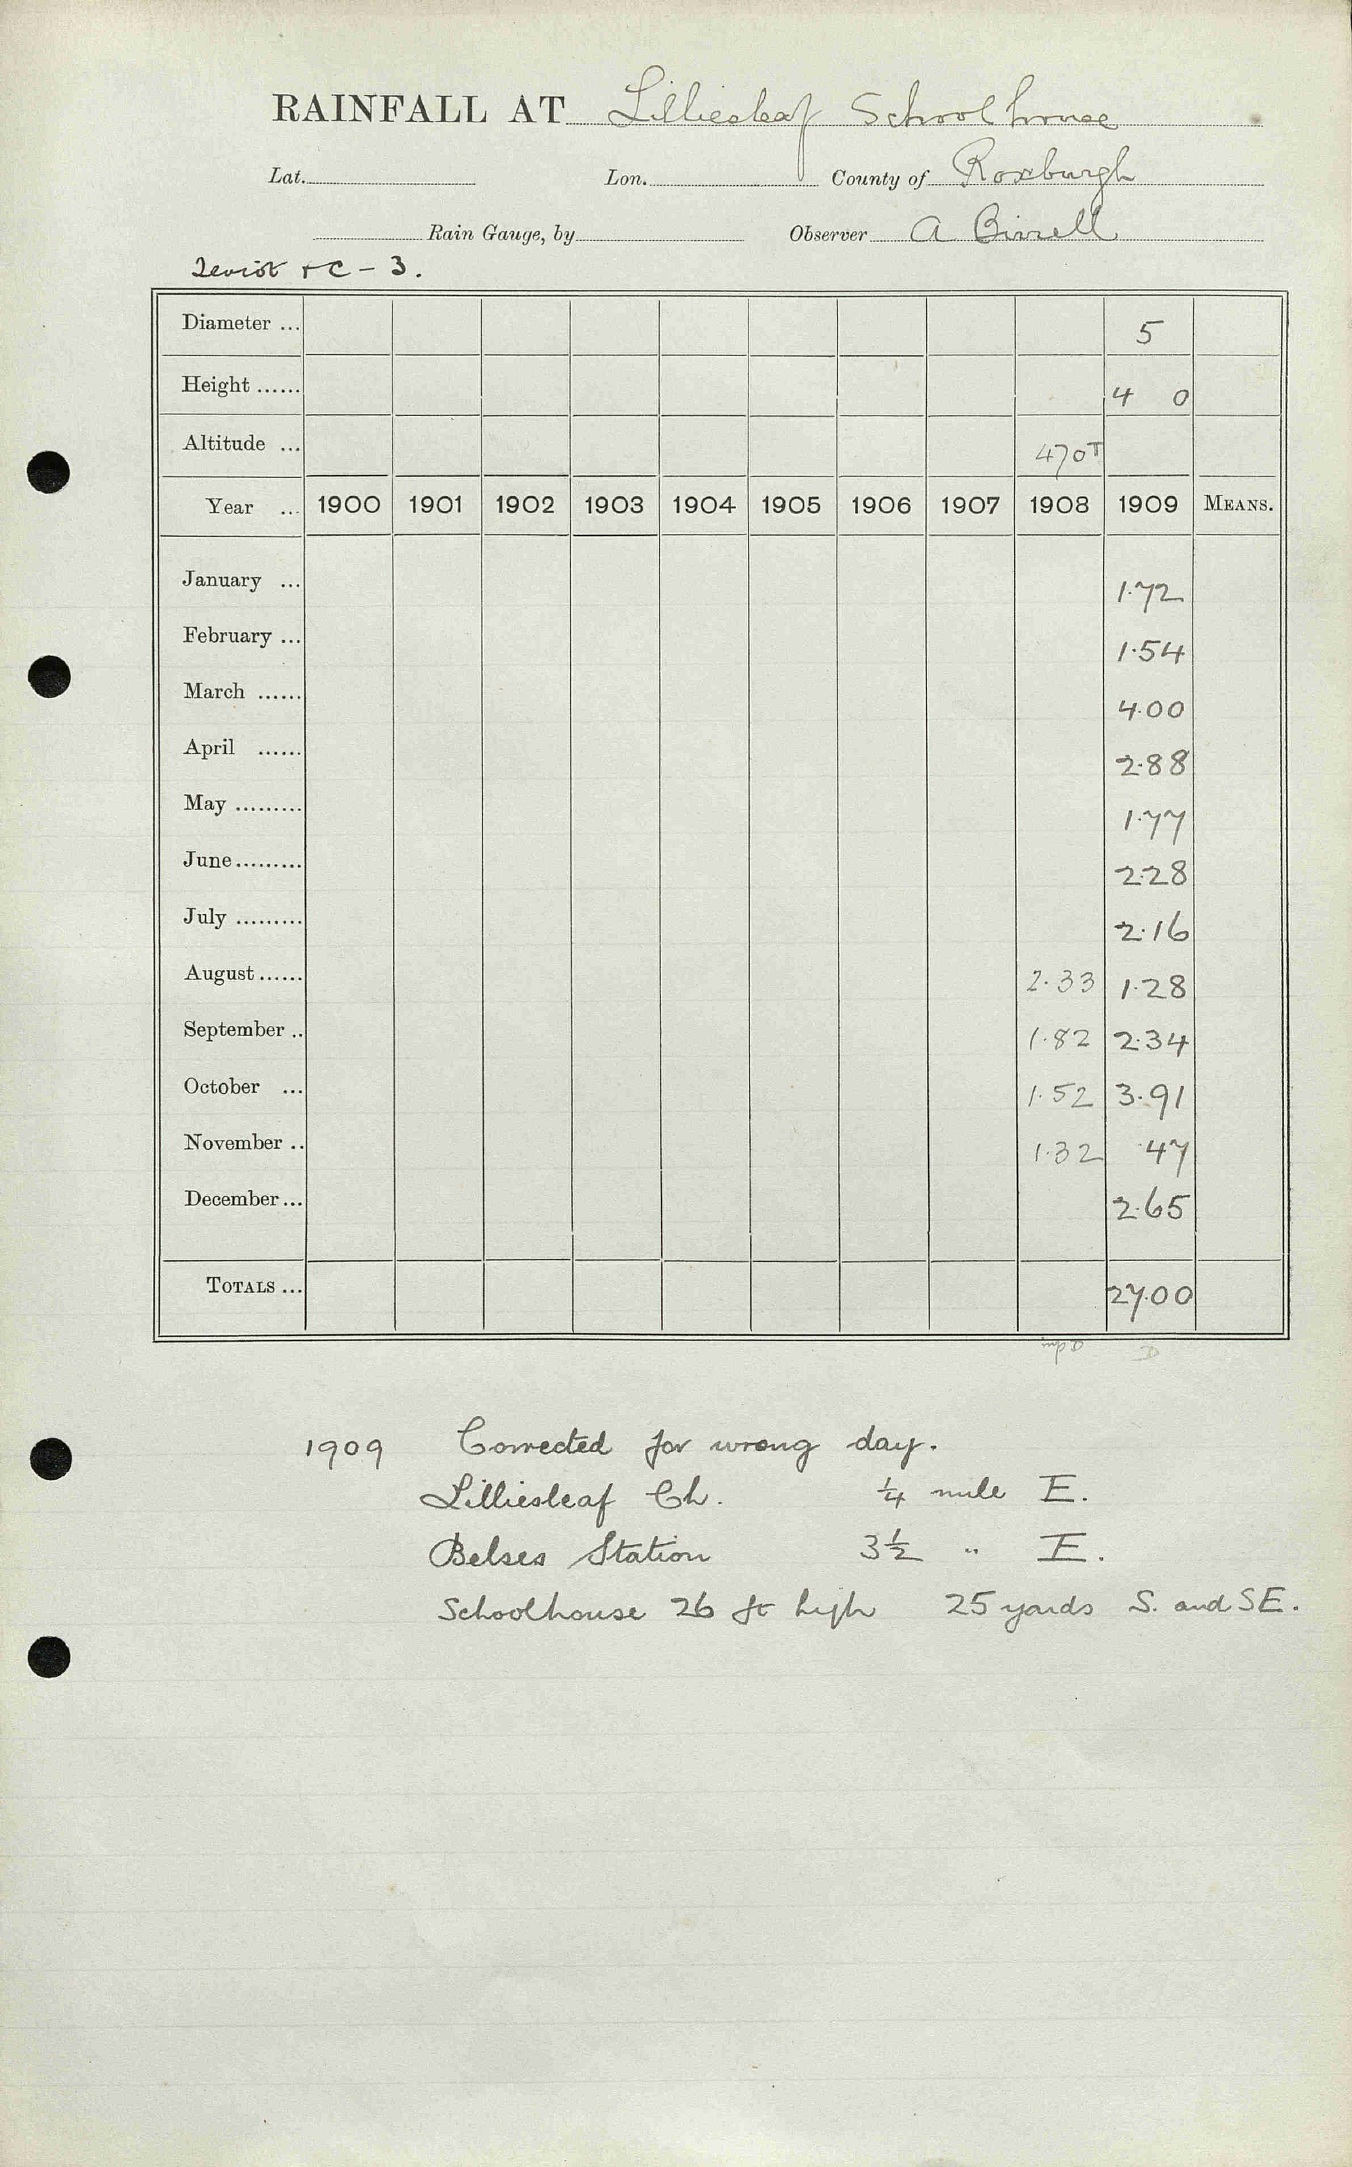 RAINFALL AT Lilliesleaf Schoolhouse
Lat. Lon. County of Roxburgh
Rain Gauge, by Observer A Birrell
Teviot &c - 3.
Diameter ... 5
Height ...... 4 0
Altitude ... 470T
Year ... 1900 1901 1902 1903 1904 1905 1906 1907 1908 1909 MEANS.
January ... 1.72
February ... 1.54
March ...... 4.00
April ...... 2.88
May ......... 1.77
June ......... 2.28
July ......... 2.16
August ...... 2.33 1.28
September .. 1.82 2.34
October ... 1.52 3.91
November .. 1.32 .47
December ... 2.65
TOTALS ... 27.00
imp D D
1909 Corrected for wrong day.
Lilliesleaf Ch. ¼ mile E.
Belses Station 3½ " E.
Schoolhouse 26 ft high 25 yards S. and SE.